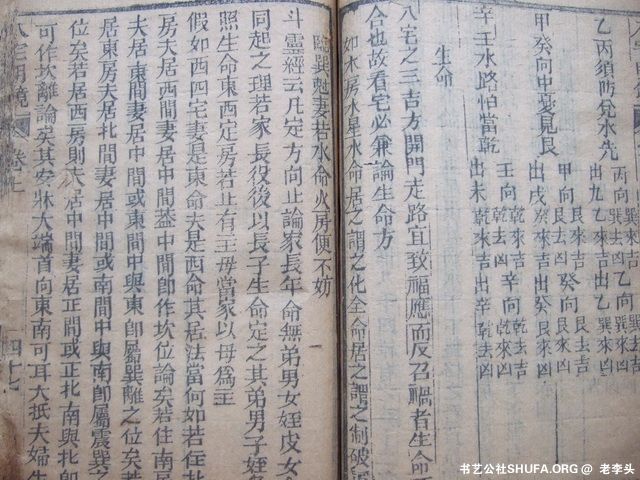 乙丙須防兌水先
丙向 巽去吉 乙向 巽去凶
出九 乾來吉 出乙 巽來凶
甲癸向中憂見艮
甲向 艮來吉 癸向 艮去吉
出戌 癸來吉 出癸 艮來凶
辛壬水路怕當乾
壬向 乾來吉 辛向 乾去吉
出未 乾去凶
生命
八宅之三吉方開門走路宜致福應而反召禍者生命
合也故看宅必兼論生命方
如木房水星水命居之謂之化全命居之謂之制破
臨巽魁妻若水命火房便不妨
斗靈經云凡定方向止論家長年命無弟男女姪皮女
同起之理若家長役後以長子生命定之其弟男子姪
照生命東西定房若止有主母當家以母為主
假如西四宅妻是東命夫是西命其居法當何如若住
夫居東間妻居中間蓋中間卽作坎位論矣若住南
夫居東間妻居中間或東間中與東卽屬巽離之位矣
居東房夫居北間妻居中間或南間中與南卽屬震巽之
位矣若居西房則夫居中間妻居正間或正北南與北
可作坎離論矣其安牀大端首向東南可耳大抵夫婦
八宅明鏡 卷上 四十七
书艺公社SHUFA.ORG @ 老李头